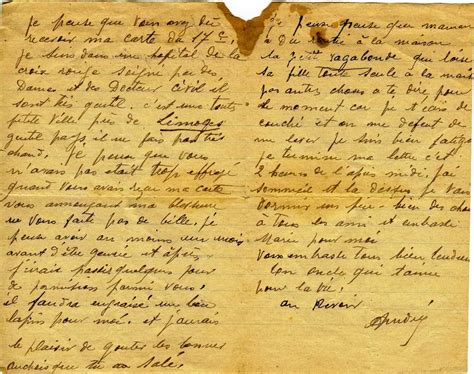 je pense que vous avez dû
recevoir ma carte du 17 C.
je suis dans un hopital de la
croix rouge seigné par des
Dame et des Docteur civil il
sont très gentil. c'est une toute
petite ville près de Limoges
gentil pays il ne fais pas très
chaud. je pense que vous
n'avais pas était trop effrayé
quand vous avais reçu ma carte
vous annonçant ma blessure
ne vous fait pas de bille. je
pense avoir au moins un mois
avant d'être guerie et après
j'irais passé quelques jour
de parmi vous.
il faudra engraissé un bon
lapin pour moi. et j'aurais
le plaisir de gouter les bonnes
anchois que tu as salé.
je pense que maman
a dû à la maison
la petite vagabonde qui laisse
sa fille toute seule à la maison
pas autre chose à te dire pour
le moment car je t'écris de
couché et on me defent de
me lever je suis bien fatigué
je termine ma lettre c'est
2 heures de l'après midi. j'ai
sommeil et la dessus je vais
dormir un peu bien des chose
à tous les ami et embrasse
Marie pour moi
vous embrasse tous bien tendrement
ton oncle qui t'aime
pour la vie.
au Revoir
André